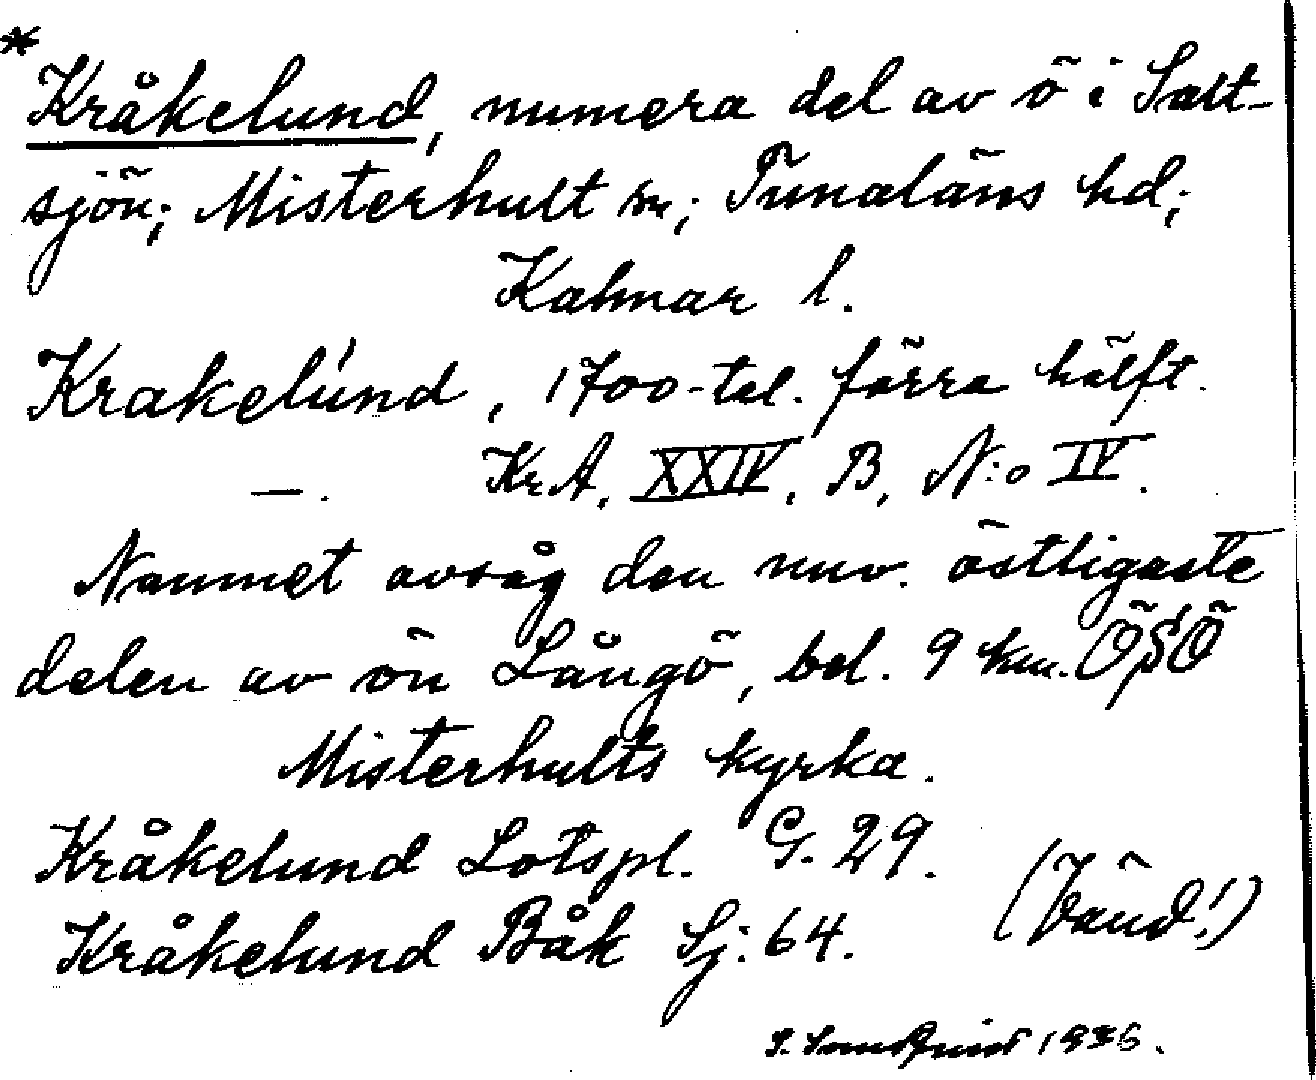 *
Kråkelund, numera del av ö i Salt-
sjön; Misterhult sn; Tunaläns hd;
Kalmar l.
Krakelund, 1700-tal. förra hälft.
—. Kr.A. XXIV, B, N:o IV.
Namnet avsåg den nuv. östligaste
delen av ön Långö, bel. 9 km. ÖSÖ
Misterhults kyrka.
Kråkelund Lotspl. G. 29.
Kråkelund Båk Sj: 64. (Vänd!)